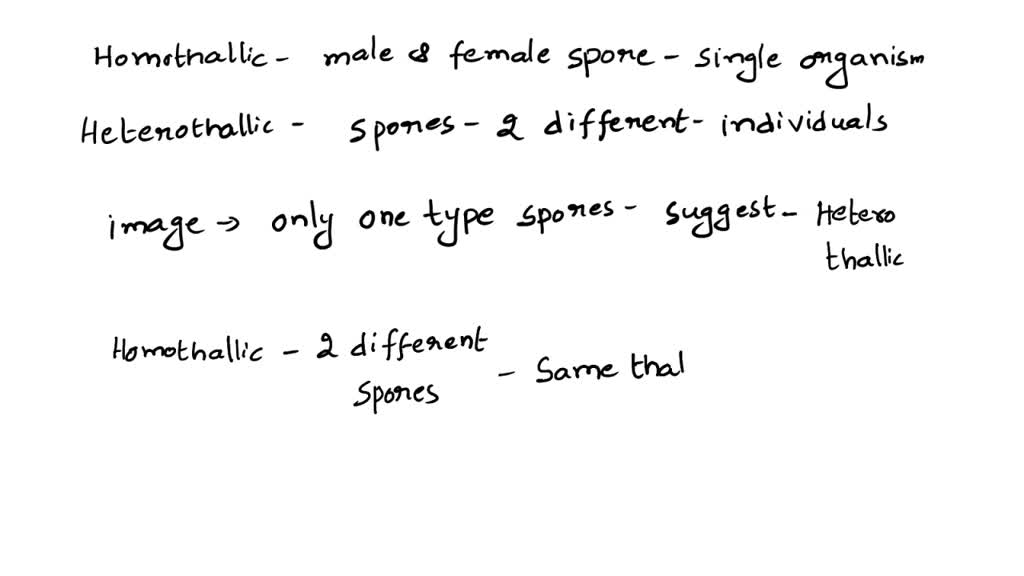 Homothallic - male & female spore - single organism
Heterothallic - spores - 2 different - individuals
image → only one type spores - suggest - Hetero
thallic
Homothallic - 2 different
spores - Same thal